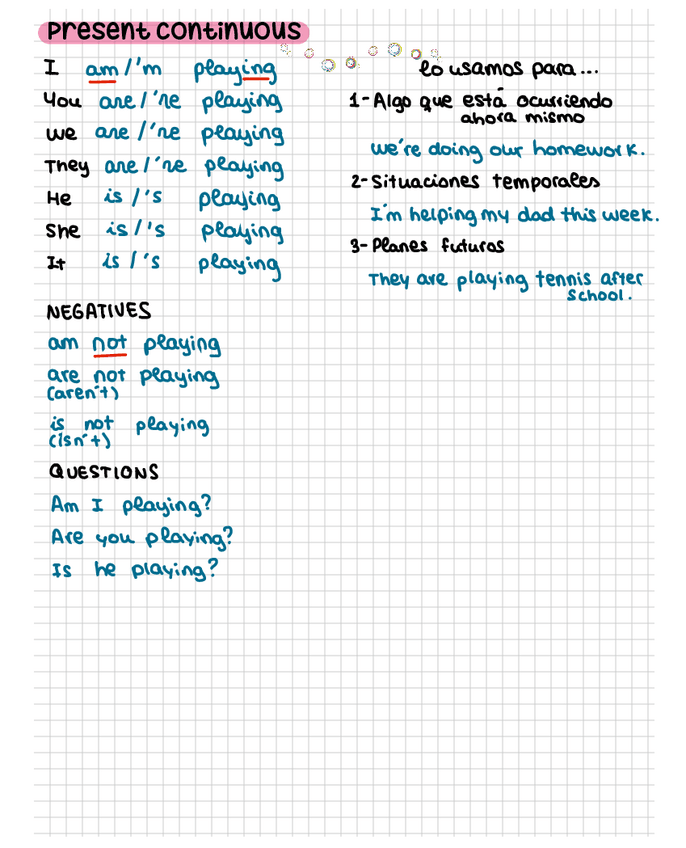 Present continuous
I am/'m playing
You are/'re playing
We are/'re playing
They are/'re playing
He is/'s playing
She is/'s playing
It is/'s playing
NEGATIVES
am not playing
are not playing
(aren't)
is not playing
(isn't)
QUESTIONS
Am I playing?
Are you playing?
Is he playing?
lo usamos para...
1- Algo que está ocurriendo
ahora mismo
We're doing our homework.
2- Situaciones temporales
I'm helping my dad this week.
3- Planes futuros
They are playing tennis after
school.